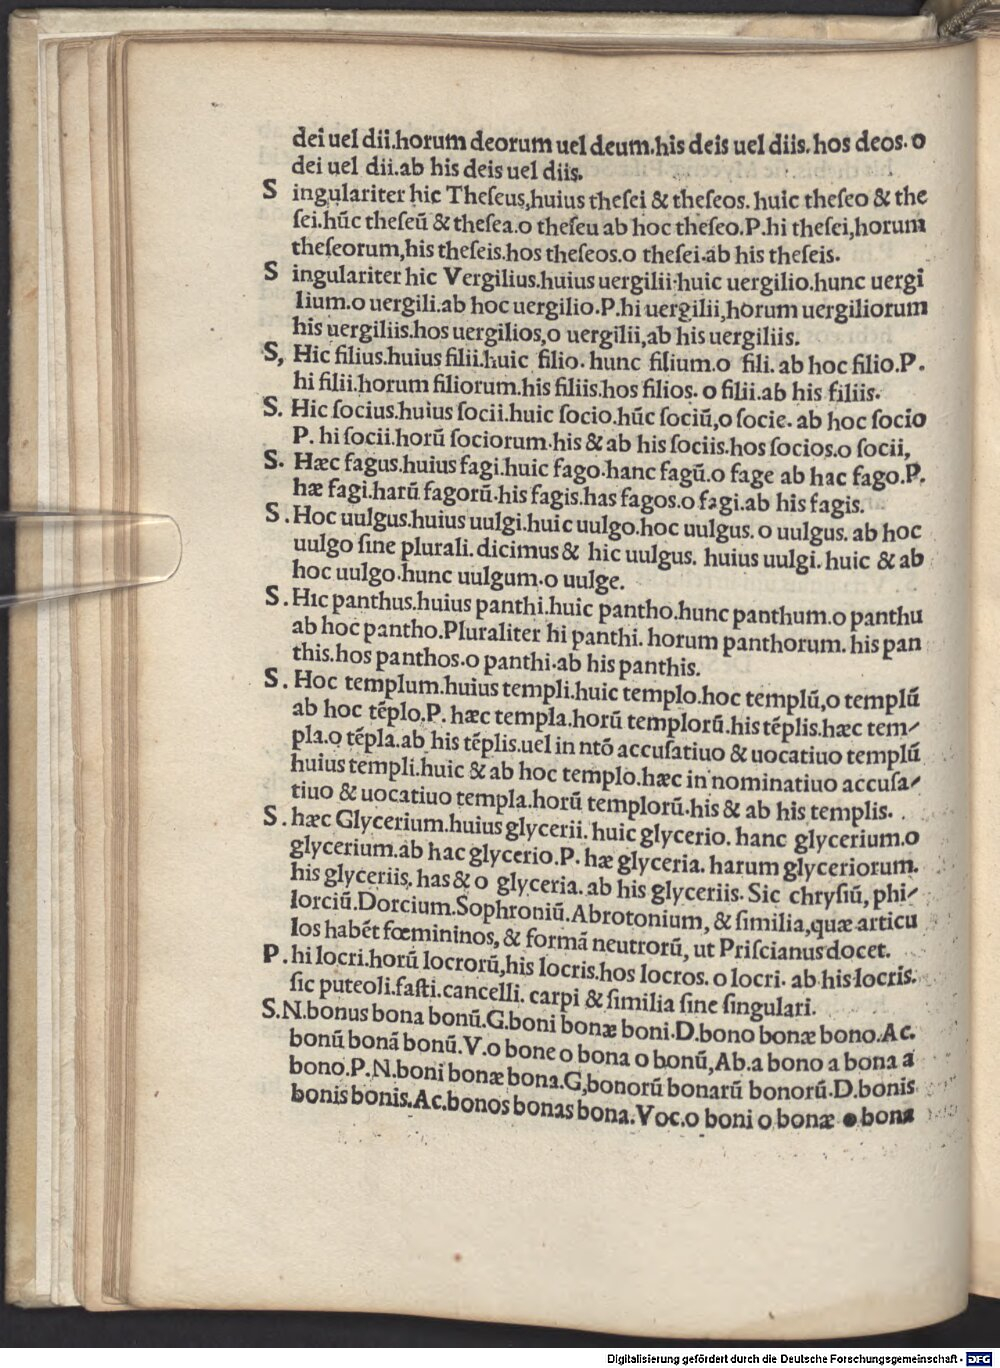 dei uel dii.horum deorum uel deum.his deis uel diis. hos deos. o
dei uel dii.ab his deis uel diis.
S ingulariter hic Theſeus,huius theſei & theſeos. huic theſeo & the
ſei.hūc theſeū & theſea.o theſeu ab hoc theſeo.P.hi theſei,horum
theſeorum,his theſeis.hos theſeos.o theſei.ab his theſeis.
S ingulariter hic Vergilius.huius uergilii.huic uergilio.hunc uergi
lium.o uergili.ab hoc uergilio.P.hi uergilii,horum uergiliorum
his uergiliis.hos uergilios,o uergilii,ab his uergiliis.
S, Hic filius.huius filii.huic filio. hunc filium.o fili. ab hoc filio.P.
hi filii.horum filiorum.his filiis.hos filios. o filii.ab his filiis.
S. Hic ſocius.huius ſocii.huic ſocio.hūc ſociū,o ſocie. ab hoc ſocio
P. hi ſocii.horū ſociorum.his & ab his ſociis.hos ſocios.o ſocii,
S. Hæc fagus.huius fagi.huic fago.hanc fagū.o fage ab hac fago.P.
hæ fagi.harū fagorū.his fagis.has fagos.o fagi.ab his fagis.
S. Hoc uulgus.huius uulgi.huic uulgo.hoc uulgus. o uulgus. ab hoc
uulgo ſine plurali. dicimus & hic uulgus. huius uulgi. huic & ab
hoc uulgo.hunc uulgum.o uulge.
S. Hic panthus.huius panthi.huic pantho.hunc panthum.o panthu
ab hoc pantho.Pluraliter hi panthi. horum panthorum. his pan
this.hos panthos.o panthi.ab his panthis.
S. Hoc templum.huius templi.huic templo.hoc templū,o templū
ab hoc tēplo.P. hæc templa.horū templorū.his tēplis.hæc tem/
pla.o tēpla.ab his tēplis.uel in ntō accuſatiuo & uocatiuo templū
huius templi.huic & ab hoc templo.hæc in nominatiuo accuſa/
tiuo & uocatiuo templa.horū templorū.his & ab his templis.
S. hæc Glycerium.huius glycerii. huic glycerio. hanc glycerium.o
glycerium.ab hac glycerio.P. hæ glyceria. harum glyceriorum.
his glyceriis. has & o glyceria. ab his glyceriis. Sic chryſiū, phi/
lorciū.Dorcium.Sophroniū.Abrotonium, & ſimilia,quæ articu
los habēt fœmininos, & formā neutrorū, ut Priſcianus docet.
P. hi locri.horū locrorū,his locris.hos locros. o locri. ab his locris.
ſic puteoli.faſti.cancelli. carpi & ſimilia ſine ſingulari.
S.N.bonus bona bonū.G.boni bonæ boni.D.bono bonæ bono.Ac.
bonū bonā bonū.V.o bone o bona o bonū,Ab.a bono a bona a
bono.P.N.boni bonæ bona.G,bonorū bonarū bonorū.D.bonis
bonis bonis.Ac.bonos bonas bona.Voc.o boni o bonæ o bona
Digitalisierung gefördert durch die Deutsche Forschungsgemeinschaft - DFG